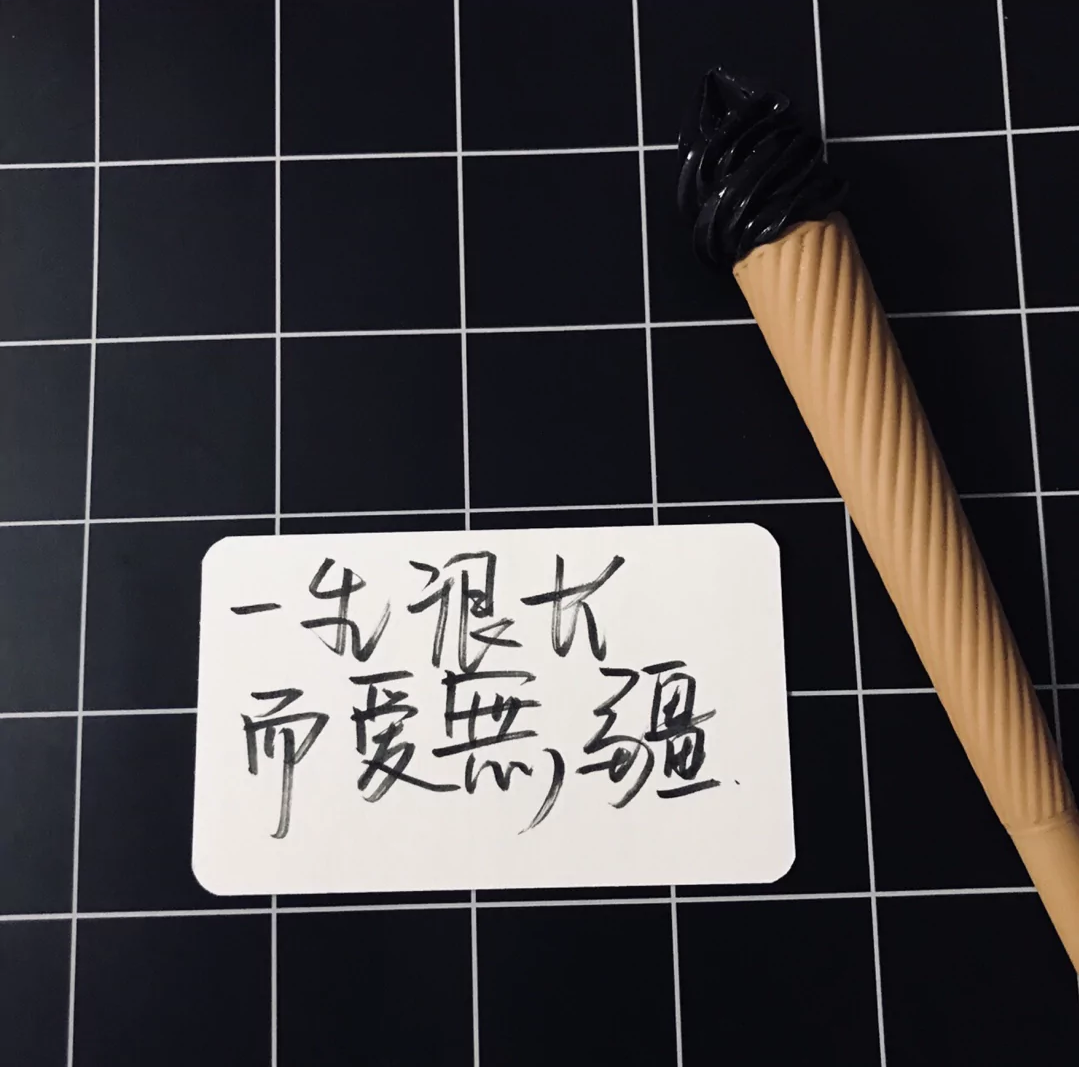 一生很长
而爱無疆.